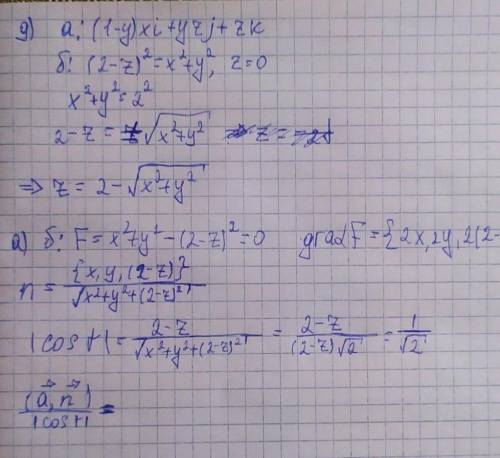 д) a: (1-y)xi+yzj+zk
б: (2-z)²=x²+y², z=0
x²+y²=2²
2-z=√(x²+y²)
⇒ z=2-√(x²+y²)
а) б: F=x²+y²-(2-z)²=0 grad F={2x,2y,2(2-
n={x,y,(2-z)}/√(x²+y²+(2-z)²)
|cos γ|=(2-z)/√(x²+y²+(2-z)²)=(2-z)/((2-z)√2)=1/√2
(a⃗,n⃗)/|cos γ|=